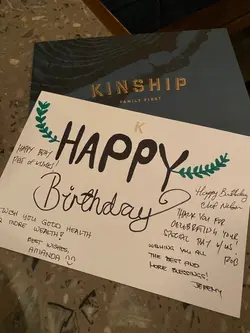 KINSHIP
FAMILY FIRST
K
HAPPY BDAY
FULL OF WISHES!
HAPPY
Birthday
WISH YOU GOOD HEALTH
& MORE WEALTH!
BEST WISHES,
AMANDA
Happy Birthday
Chef
THANK YOU FOR
CELEBRATING YOUR
SPECIAL DAY W/ US!
WISHING YOU ALL
THE BEST AND
MORE BLESSINGS!
JEREMY